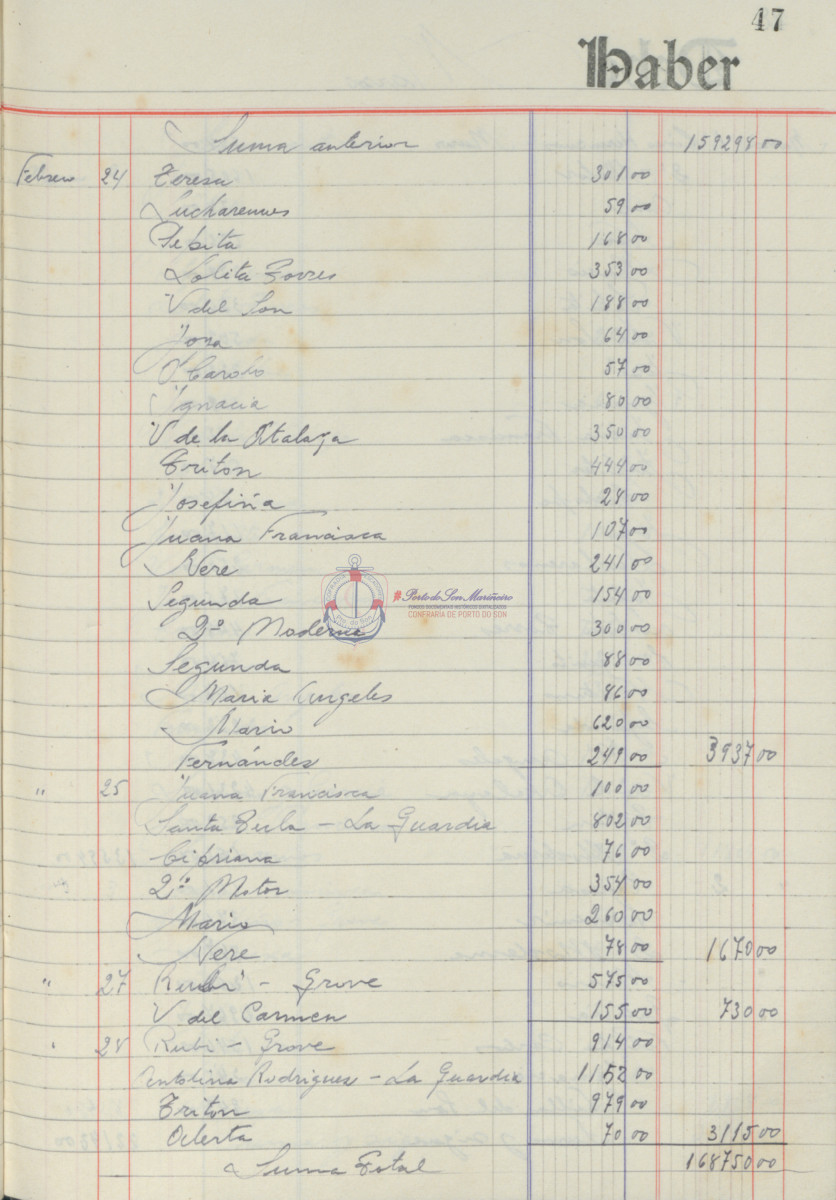 47
Haber
Suma anterior 159298 00
Febrero 24 Teresa 301 00
Lucharemos 59 00
Pepita 168 00
Lolita Torres 353 00
V del Son 188 00
Josa 64 00
57 00
Ignacia 80 00
V de la Atalaya 350 00
Triton 444 00
Josefina 28 00
Juana Francisca 107 00
Nere 241 00
Segunda 154 00
2º Moderno 300 00
Segunda 88 00
Maria Angeles 86 00
Mario 620 00
Fernández 249 00 3937 00
" 25 Juana Francisca 100 00
Santa Tecla - La Guardia 802 00
Cipriana 76 00
2º Motor 354 00
Mario 260 00
Nere 78 00 1670 00
" 27 Rubi - Grove 575 00
V del Carmen 155 00 730 00
" 28 Rubi - Grove 914 00
Antolina Rodriguez - La Guardia 1152 00
Triton 979 00
70 00 3115 00
Suma Total 168750 00
#PortodoSonMariñeiro
FONDOS DOCUMENTAIS HISTÓRICOS DIXITALIZADOS
CONFRARÍA DE PORTO DO SON